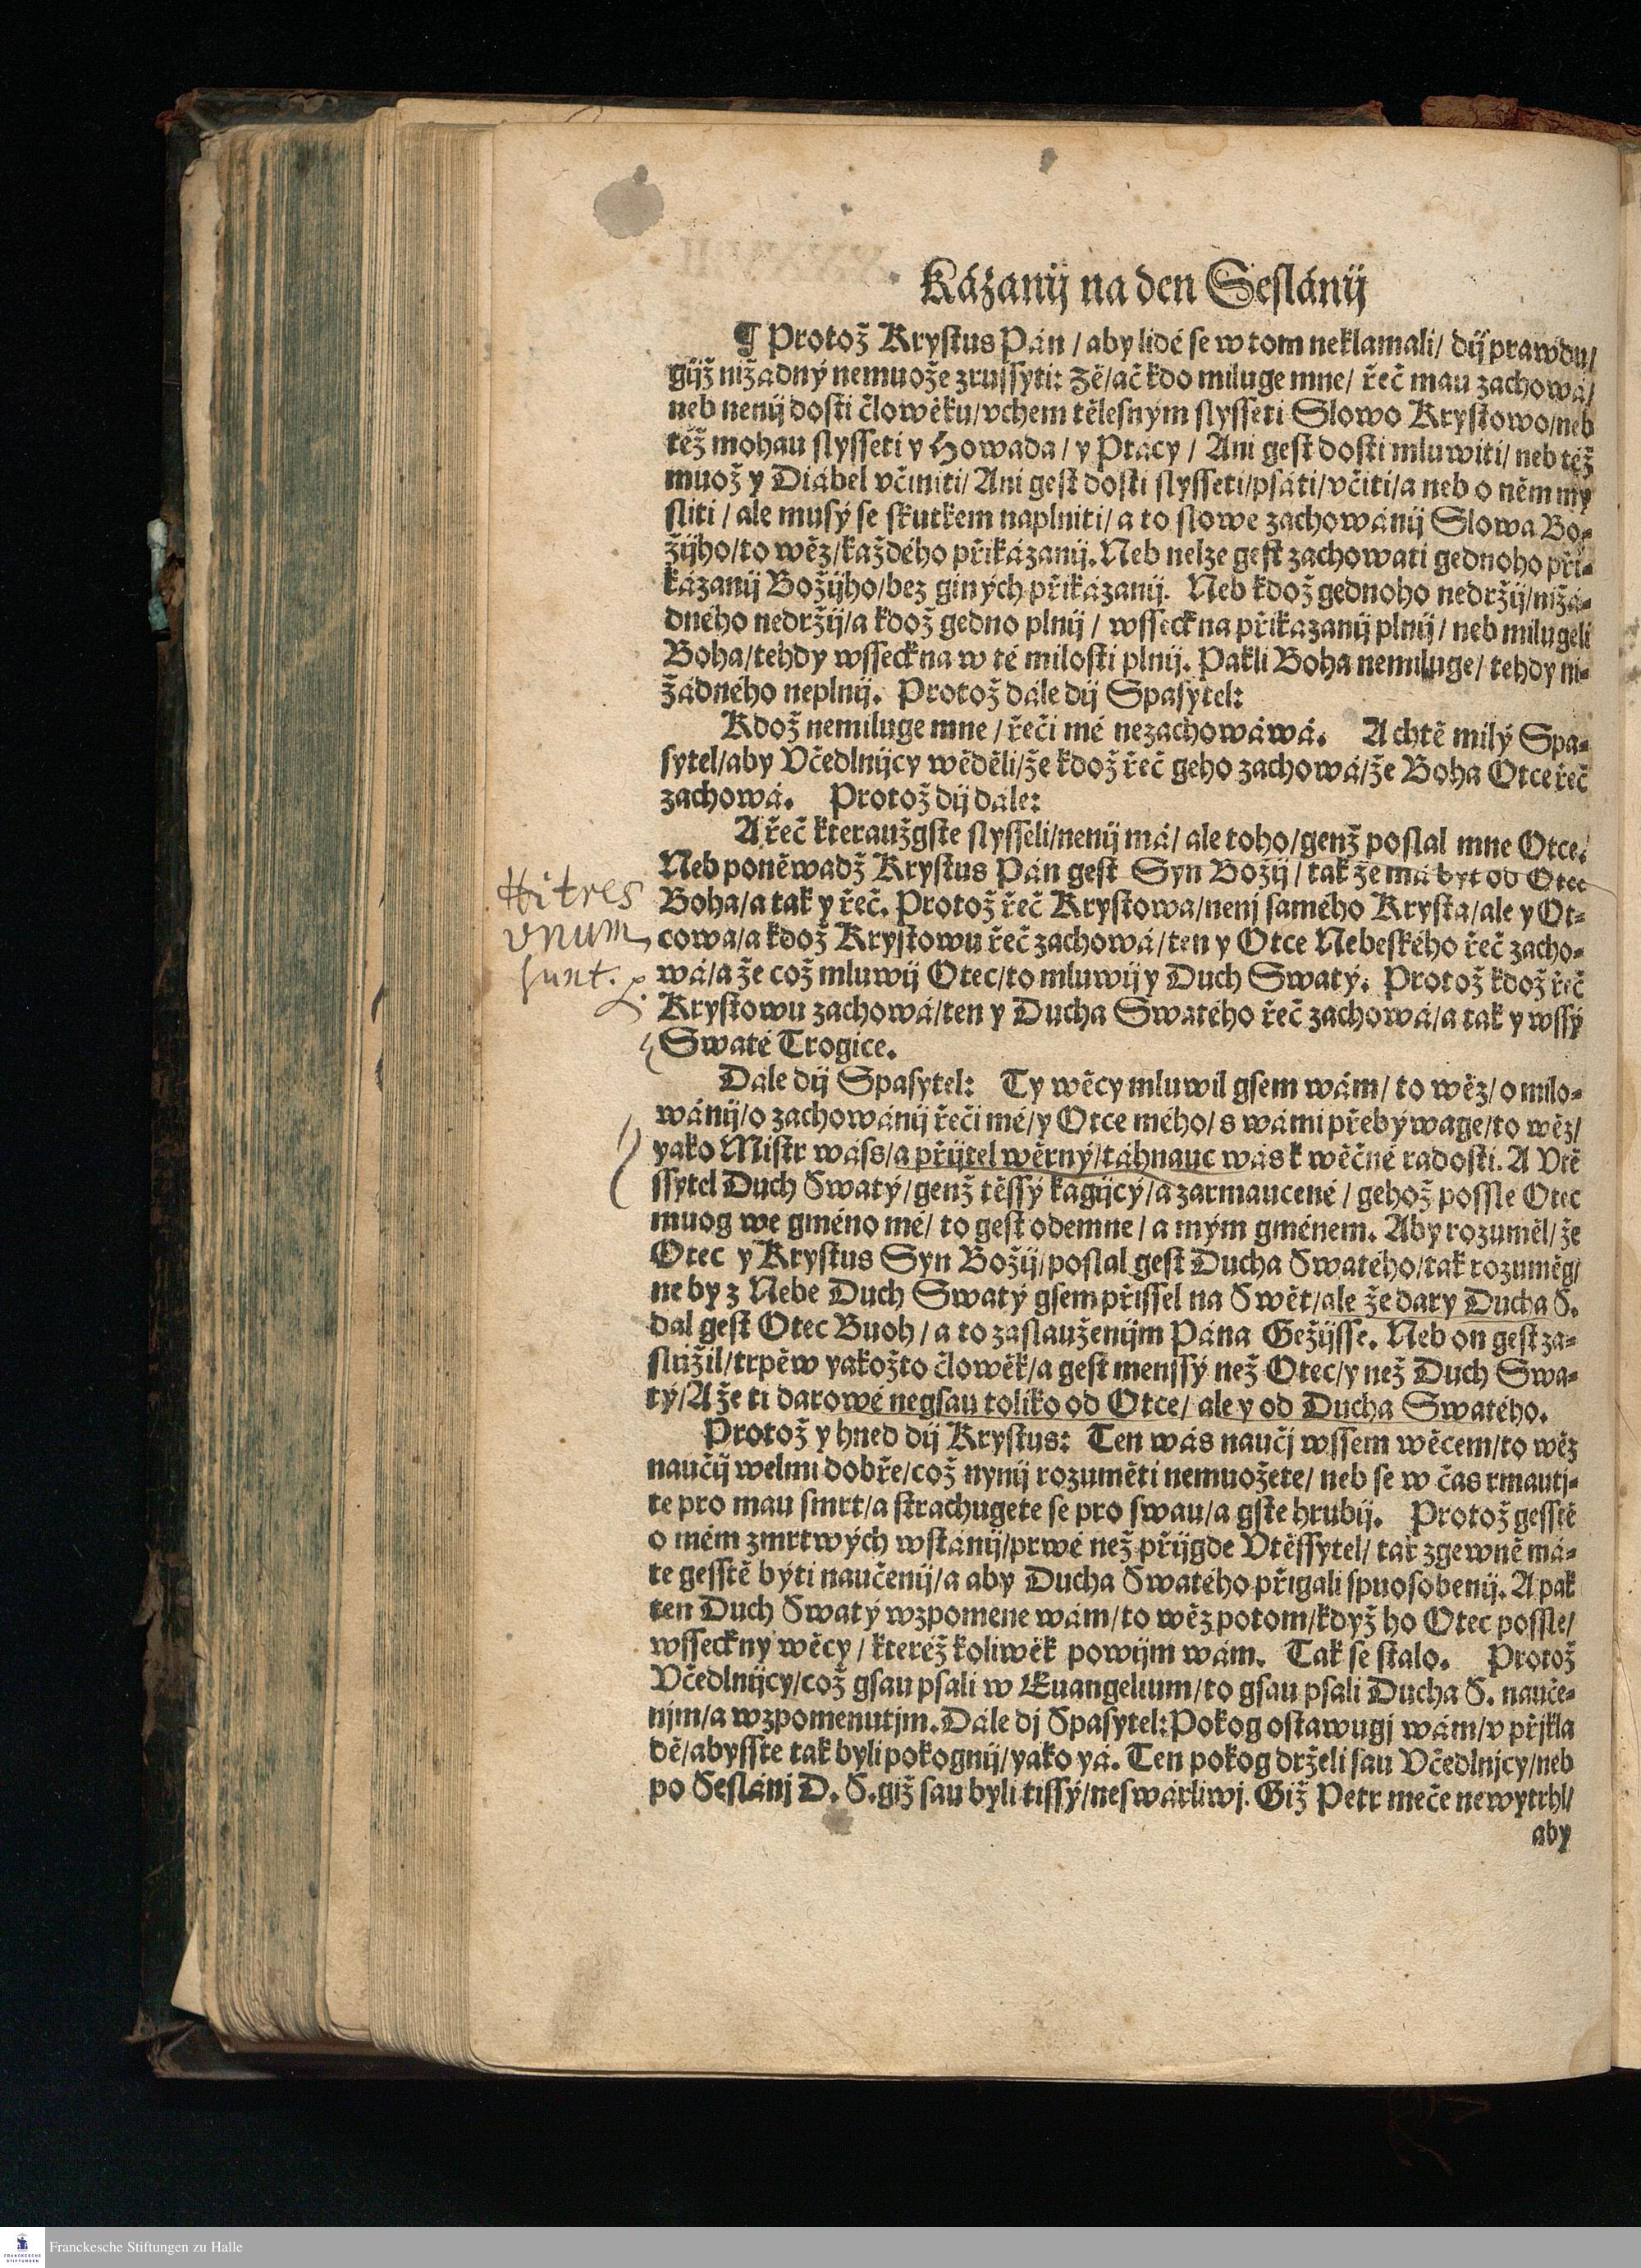 Kázanij na den Seslánij
¶ Protož Krystus Pán / aby lidé se w tom neklamali / dij prawdu /
gijž nižádný nemuože zrussyti: Žě / ač kdo miluge mne / řeč mau zachowá /
neb nenij dosti člowěku / vchem tělesným slysseti Slowo Krystowo / neb
též mohau slysseti y Howada / y Ptácy / Ani gest dosti mluwiti / neb též
muož y Diábel včiniti / Ani gest dosti slysseti / psáti / včiti / a neb o něm my
sliti / ale musý se skutkem naplniti / a to slowe zachowánij Slowa Bo-
žijho / to wěz / každého přikázanij. Neb nelze gest zachowati gednoho při-
kázanij Božijho / bez giných přikázanij. Neb kdož gednoho nedržij / nižá-
dného nedržij / a kdož gedno plnij / wsseckna přikázanij plnij / neb milugeli
Boha / tehdy wsseckna w té milosti plnij. Pakli Boha nemiluge / tehdy ni-
žádného neplnij. Protož dále dij Spasytel:
Kdož nemiluge mne / řeči mé nezachowáwá. A chtě milý Spa-
sytel / aby Včedlnijcy wěděli / že kdož řeč geho zachowá / že Boha Otce řeč
zachowá. Protož dij dále:
A řeč kteraužgste slysseli / nenij má / ale toho / genž poslal mne Otce.
Neb poněwadž Krystus Pán gest Syn Božij / tak že má byt od Otce
Boha / a tak y řeč. Protož řeč Krystowa / nenj samého Krysta / ale y Ot-
cowa / a kdož Krystowu řeč zachowá / ten y Otce Nebeského řeč zacho-
wá / a že což mluwij Otec / to mluwij y Duch Swatý. Protož kdož řeč
Krystowu zachowá / ten y Ducha Swatého řeč zachowá / a tak y wssý
Swaté Trogice.
Hi tres
vnum
sunt.
Dále dij Spasytel: Ty wěcy mluwil gsem wám / to wěz / o milo-
wánij / o zachowánij řeči mé / y Otce mého / s wámi přebýwage / to wěz /
yako Mistr wáss / a přijtel wěrný / táhnauc wás k wěčné radosti. A Vtě
ssytel Duch Swatý / genž těssý kagijcý / a zarmaucené / gehož possle Otec
muog we gméno mé / to gest odemne / a mým gménem. Aby rozuměl / že
Otec y Krystus Syn Božij / poslal gest Ducha Swatého / tak rozuměg /
ne by z Nebe Duch Swatý gsem přissel na Swět / ale že dary Ducha S.
dal gest Otec Buoh / a to zaslauženijm Pána Gežijsse. Neb on gest za-
slúžil / trpěw yakožto člowěk / a gest menssý než Otec / y než Duch Swa-
tý / A že ti darowé negsau toliko od Otce / ale y od Ducha Swatého.
Protož y hned dij Krystus: Ten wás naučj wssem wěcem / to wěz
naučij welmi dobře / což nynij rozuměti nemuožete / neb se w čas rmautj-
te pro mau smrt / a strachugete se pro swau / a gste hrubij. Protož gesstě
o mém zmrtwých wstánij / prwé než přijgde Vtěssytel / tak zgewně má-
te gesstě býti naučenij / a aby Ducha Swatého přigali spuosobenij. A pak
ten Duch Swatý wzpomene wám / to wěz potom / když ho Otec possle /
wsseckny wěcy / kteréž koliwěk powijm wám. Tak se stalo. Protož
Včedlnijcy / což gsau psali w Euangelium / to gsau psali Ducha S. nauče-
njm / a wzpomenutjm. Dále dj Spasytel: Pokog ostawugj wám / v přjkla
dě / abysste tak byli pokognij / yako yá. Ten pokog drželi sau Včedlnjcy / neb
po Seslánj D. S. giž sau byli tissý / neswárliwj. Giž Petr meče newytrhl /
aby
Franckesche Stiftungen zu Halle
FRANCKESCHE
STIFTUNGEN